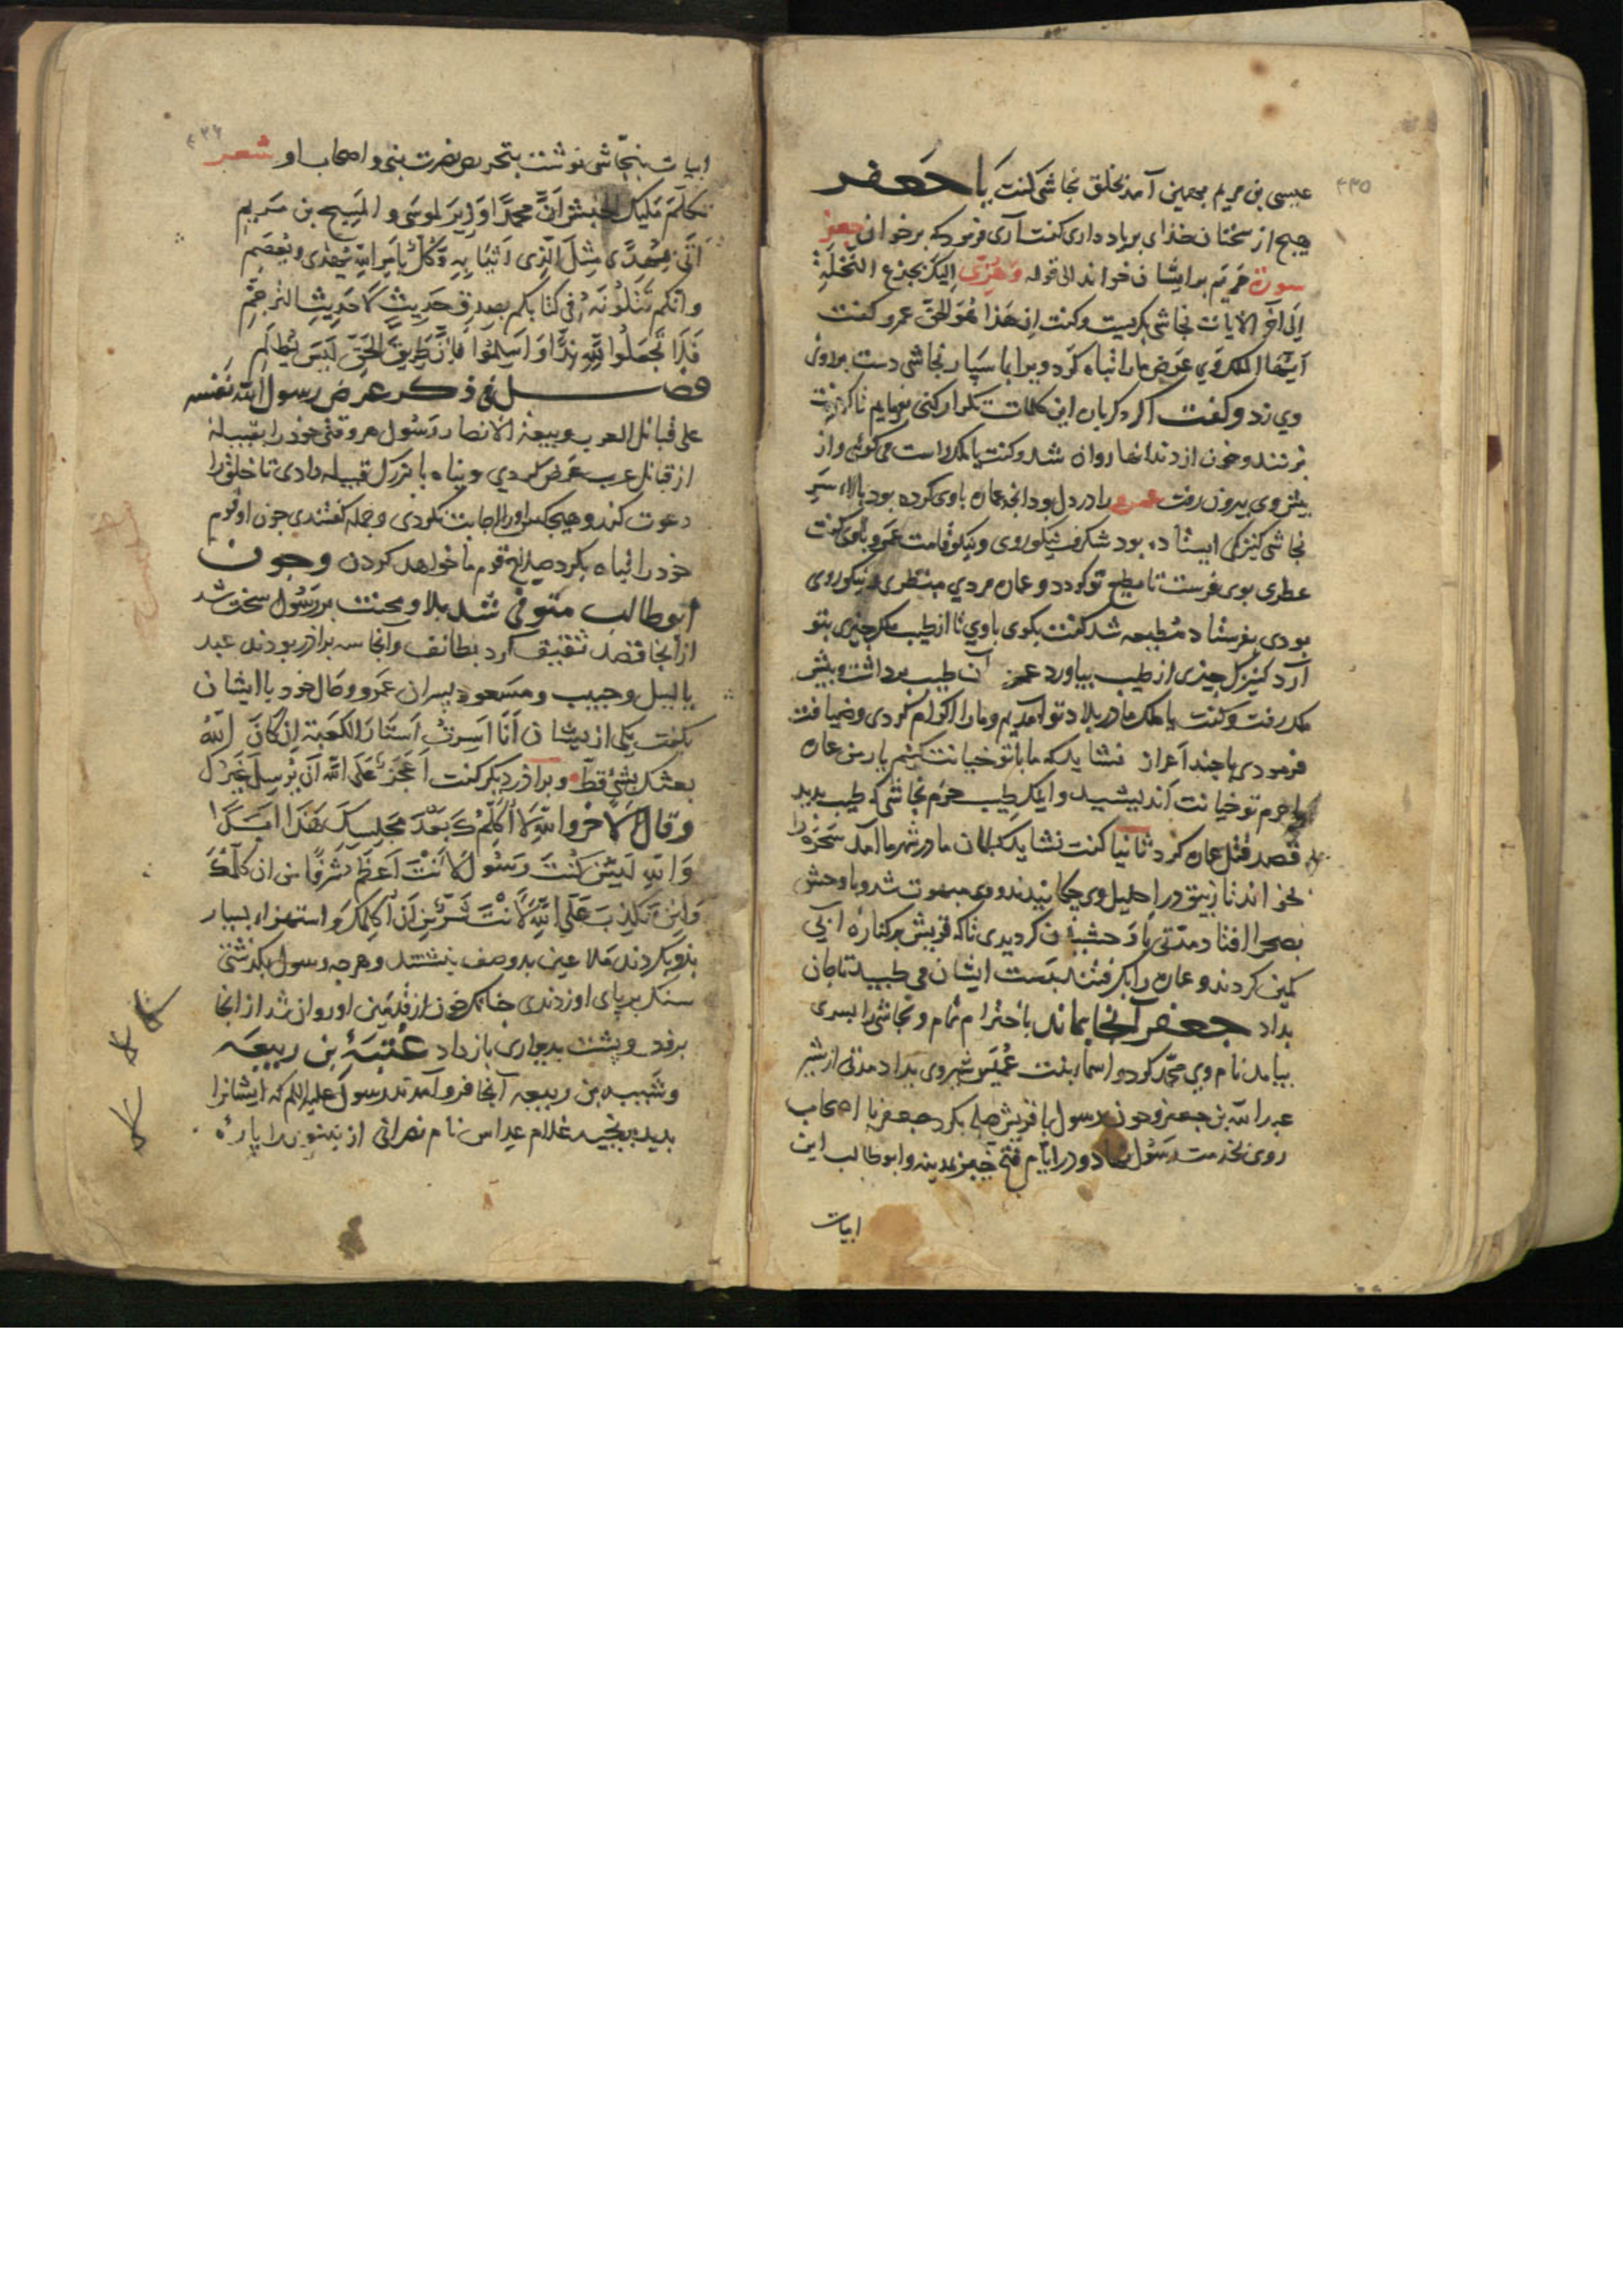 ۴۳۵
عیسی بن مریم بهمین آمد بخلق نجاشی کفت یا جعفر
هیچ از سخنان خدای بر یاد داری کفت آری فرمود که بر خوان جعفر
سورة مریم بر ایشان خواند الی قوله وَهُزِّی اِلیکِ بجذع النَّخلَةِ
اِلی آخر الآیات نجاشی بکریست و کفت اِن هَذا لَهُوَ الحقّ عمرو کفت
اَیُّهَا الملک وی عوض ما را تباه کرد ویرا بما سپار نجاشی دست بر روی
وی زد و کفت اکر دیکر بار این کلمات تکرار کنی بفرمایم تا کردنت
بزنند و خون از دندانها روان شد و کفت یا ملک راست می کوئی و از
پیش وی بیرون رفت عمرو را در دل بود آنچه عماره باوی کرده بود بالاء سر
نجاشی کنیزکی ایستاده بود شکرف نیکوروی و نیکو قامت عمرو باوی کفت
عطری بوی فرست تا مطیع تو کردد و عماره مردی منظری و نیکوروی
بودی بفرستاد مطیعه شد کفت بکوی باوی تا از طیب ملک چیزی بتو
آرد کنیزک چیزی از طیب بیاورد عمرو آن طیب برداشت و پیش
ملک رفت و کفت یا ملک ما در بلاد تو آمدیم و ما را اکرام کردی و ضیافت
فرمودی با چند اعزاز نشاید که ما با تو خیانت کنیم یار من عماره
با حرم تو خیانت اندیشید و اینک طیب حرم نجاشی که طیب بدید
قصد قتل عماره کرد ثانیا کفت نشاید کشتن ما در شهر ما آمد سَحَرَه را
بخواند تا زیبق در احلیل وی چکانیدند و وی مبهوت شد و با وحش
بصحرا افتاد مدتی با وحشیان کردیدی تا که قریش بر کناره آبی
کمین کردند و عماره را بکرفتند بدست ایشان می طپید تا جان
بداد جعفر آنجا بماند با احترام تمام و نجاشی را پسری
بیامد نام وی محمد کرد و اسماء بنت عمیس شیر وی بداد مدتی از شیر
عبد الله بن جعفر و چون رسول با قریش صلح بکرد جعفر با اصحاب
روی بخدمت رسول نهاد و در ایام فتح خیبر بمدینه و ابو طالب این
ابیات
۴۳۶
ابیات بنجاشی نوشت بتحریص نصرت نبی و اصحاب او شعر
تَعَلَّم مَلیکَ الحبشِ اَنَّ محمدًا وزیر لموسی و المسیح بن مریم
اَتَی بِهُدًی مِثلَ الَّذی اَتَیَا بِهِ وَکُلٌّ بِاَمرِ اللهِ یَهدی و یَعصِم
و انکم تَتلُونَه فی کتابکم بصدقِ حَدیثٍ لَا حَدیثِ الترجُّم
فَلَا تَجعَلُوا لِلّهِ نِدًّا وَ اَسلِمُوا فَاِنَّ طَرِیقَ الحَقِّ لَیسَ بِمُظلِم
فصـــل فی ذکر عرض رسول الله نفسه
علی قبائل العرب و بیعة الانصار رسول هر وقتی خود را بقبیلهٔ
از قبائل عرب عرض کردی و پناه با بزرک قبیله دادی تا خلق را
دعوت کند و هیچکس او را اجابت نکردی و جمله کفتندی چون او قوم
خود را تباه بکرد صلاح قوم ما خواهد کردن و چون
ابو طالب متوفی شد بلا و محنت بر رسول سخت شد
از آنجا قصد ثقیف کرد بطائف و آنجا سه براذر بودند عبد
یالیل و حبیب و مسعود پسران عمرو و حال خود با ایشان
بکفت یکی از ایشان اَنَا اَسرِقُ اَستَارَ الکَعبَةِ اِن کَانَ اللهُ
بعثک بشیٔ قطّ و براذر دیکر کفت اَعَجَزَ عَلَی الله اَن یُرسِلَ غَیرَک
وَ قالَ الآخَرُ وَاللهِ لَا اُکَلِّمُکَ بَعدَ مَجلِسِکَ هَذَا اَبَدًا
وَ اللهِ لَئِن کُنتَ رَسُولًا لَاَنتَ اَعظَمُ شَرفًا من ان اکلمک
وَ اِن تَکذِبُ عَلَی اللهِ لَاَنتَ شَرٌّ مِن اَن اُکَلِّمَکَ و استهزاء بسیار
بذو بکردند ملاعین بدو صف بنشستند و هر چه رسول بکذشتی
سنک بر پای او زدندی چنانک خون از قدمین او روان شد از آنجا
برفت و پشت بدیواری باز داد عُتبَةُ بن ربیعه
و شیبه بن ربیعه آنجا فرو آمدند رسول علیه السلم که ایشانرا
بدید برنجید غلام عداس نام نصرانی از نینوی را پارهٔ